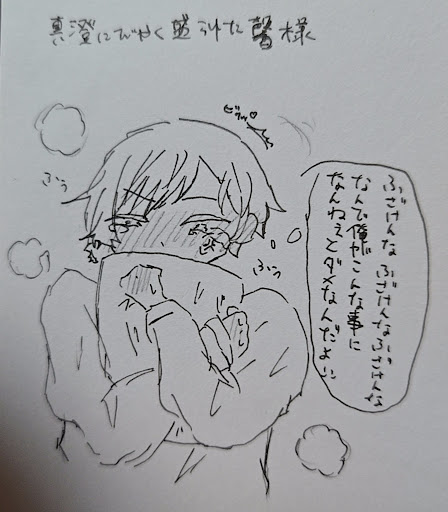 真澄にびやく盛られた馨様
ビクッ♡
ふぅ
ふぅ
ふざけんな ふざけんなふざけんな
なんで僕がこんな事に
なんねぇとダメなんだよ…